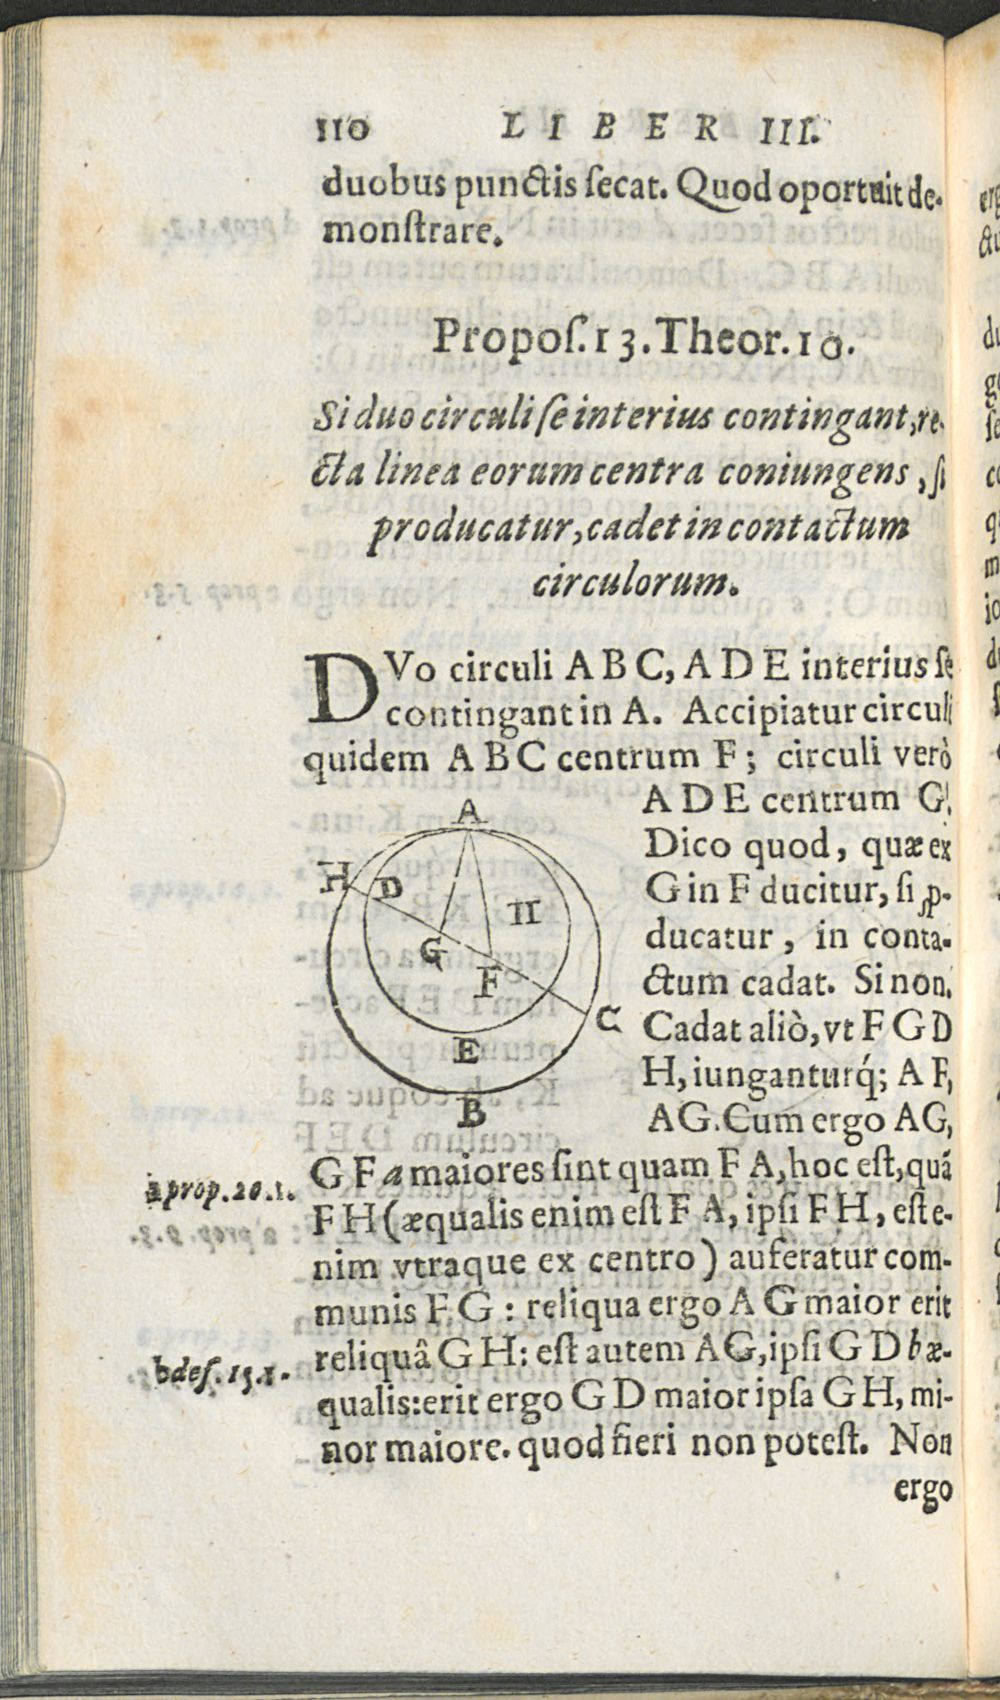 110 LIBER III.
duobus punctis ſecat. Quod oportuit de-
monſtrare.
Propoſ.13.Theor.10.
Si duo circuli ſe interius contingant, re-
cta linea eorum centra coniungens, ſi
producatur, cadet in contactum
circulorum.
DVo circuli A B C, A D E interius ſe
contingant in A. Accipiatur circuli
quidem A B C centrum F; circuli verò
A D E centrum G.
Dico quod, quæ ex
G in F ducitur, ſi ꝓ-
ducatur, in conta-
ctum cadat. Si non.
Cadat aliò, vt F G D
H, iunganturq́; A F,
AG. Cum ergo AG,
A
H
D
II
G
F
C
E
B
G F a maiores ſint quam F A, hoc eſt, quã
a prop.20.1.
F H (æqualis enim eſt F A, ipſi F H, eſt e-
nim vtraque ex centro) auferatur com-
munis F G : reliqua ergo A G maior erit
reliquâ G H: eſt autem AG, ipſi G D b æ-
b def.15.1.
qualis: erit ergo G D maior ipſa G H, mi-
nor maiore. quod fieri non poteſt. Non
ergo